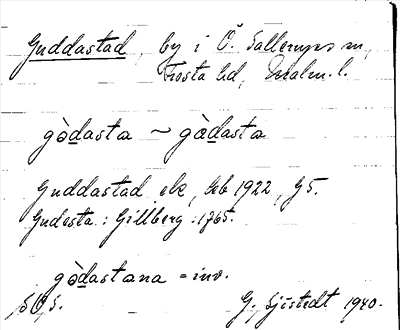 Guddastad, by i Ö. Sallerups sn,
Frosta hd, Malm. l.
gòdasta ~ gœ̀dasta
Guddastad ek, Geb 1922, G5.
Gudesta: Gillberg: 1765.
gòdastana = inv.
SOs. G. Sjöstedt 1940.